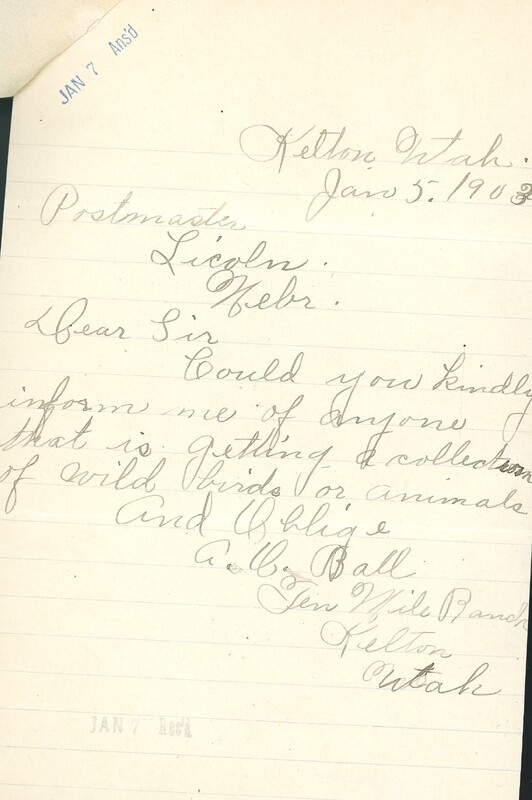 JAN 7 Ans'd
Kelton Utah.
Jan 5. 1903
Postmaster
Licoln.
Nebr.
Dear Sir
Could you kindly
inform me of anyone
that is getting a collection
of wild birds or animals
And Oblige
A. C. Ball
Ten Mile Ranch
Kelton
Utah
JAN 7 Rec'd